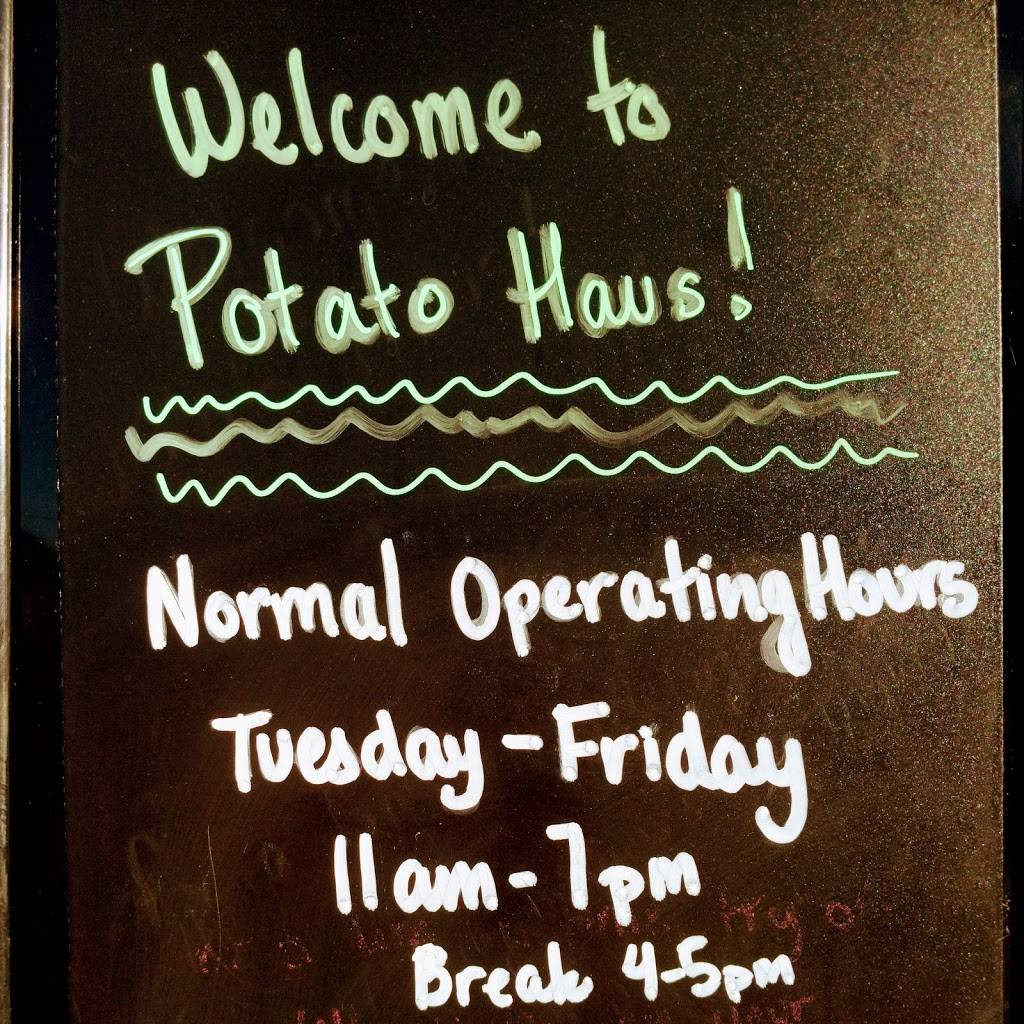 Welcome to
Potato Haus!
Normal Operating Hours
Tuesday - Friday
11am - 7pm
Break 4-5pm